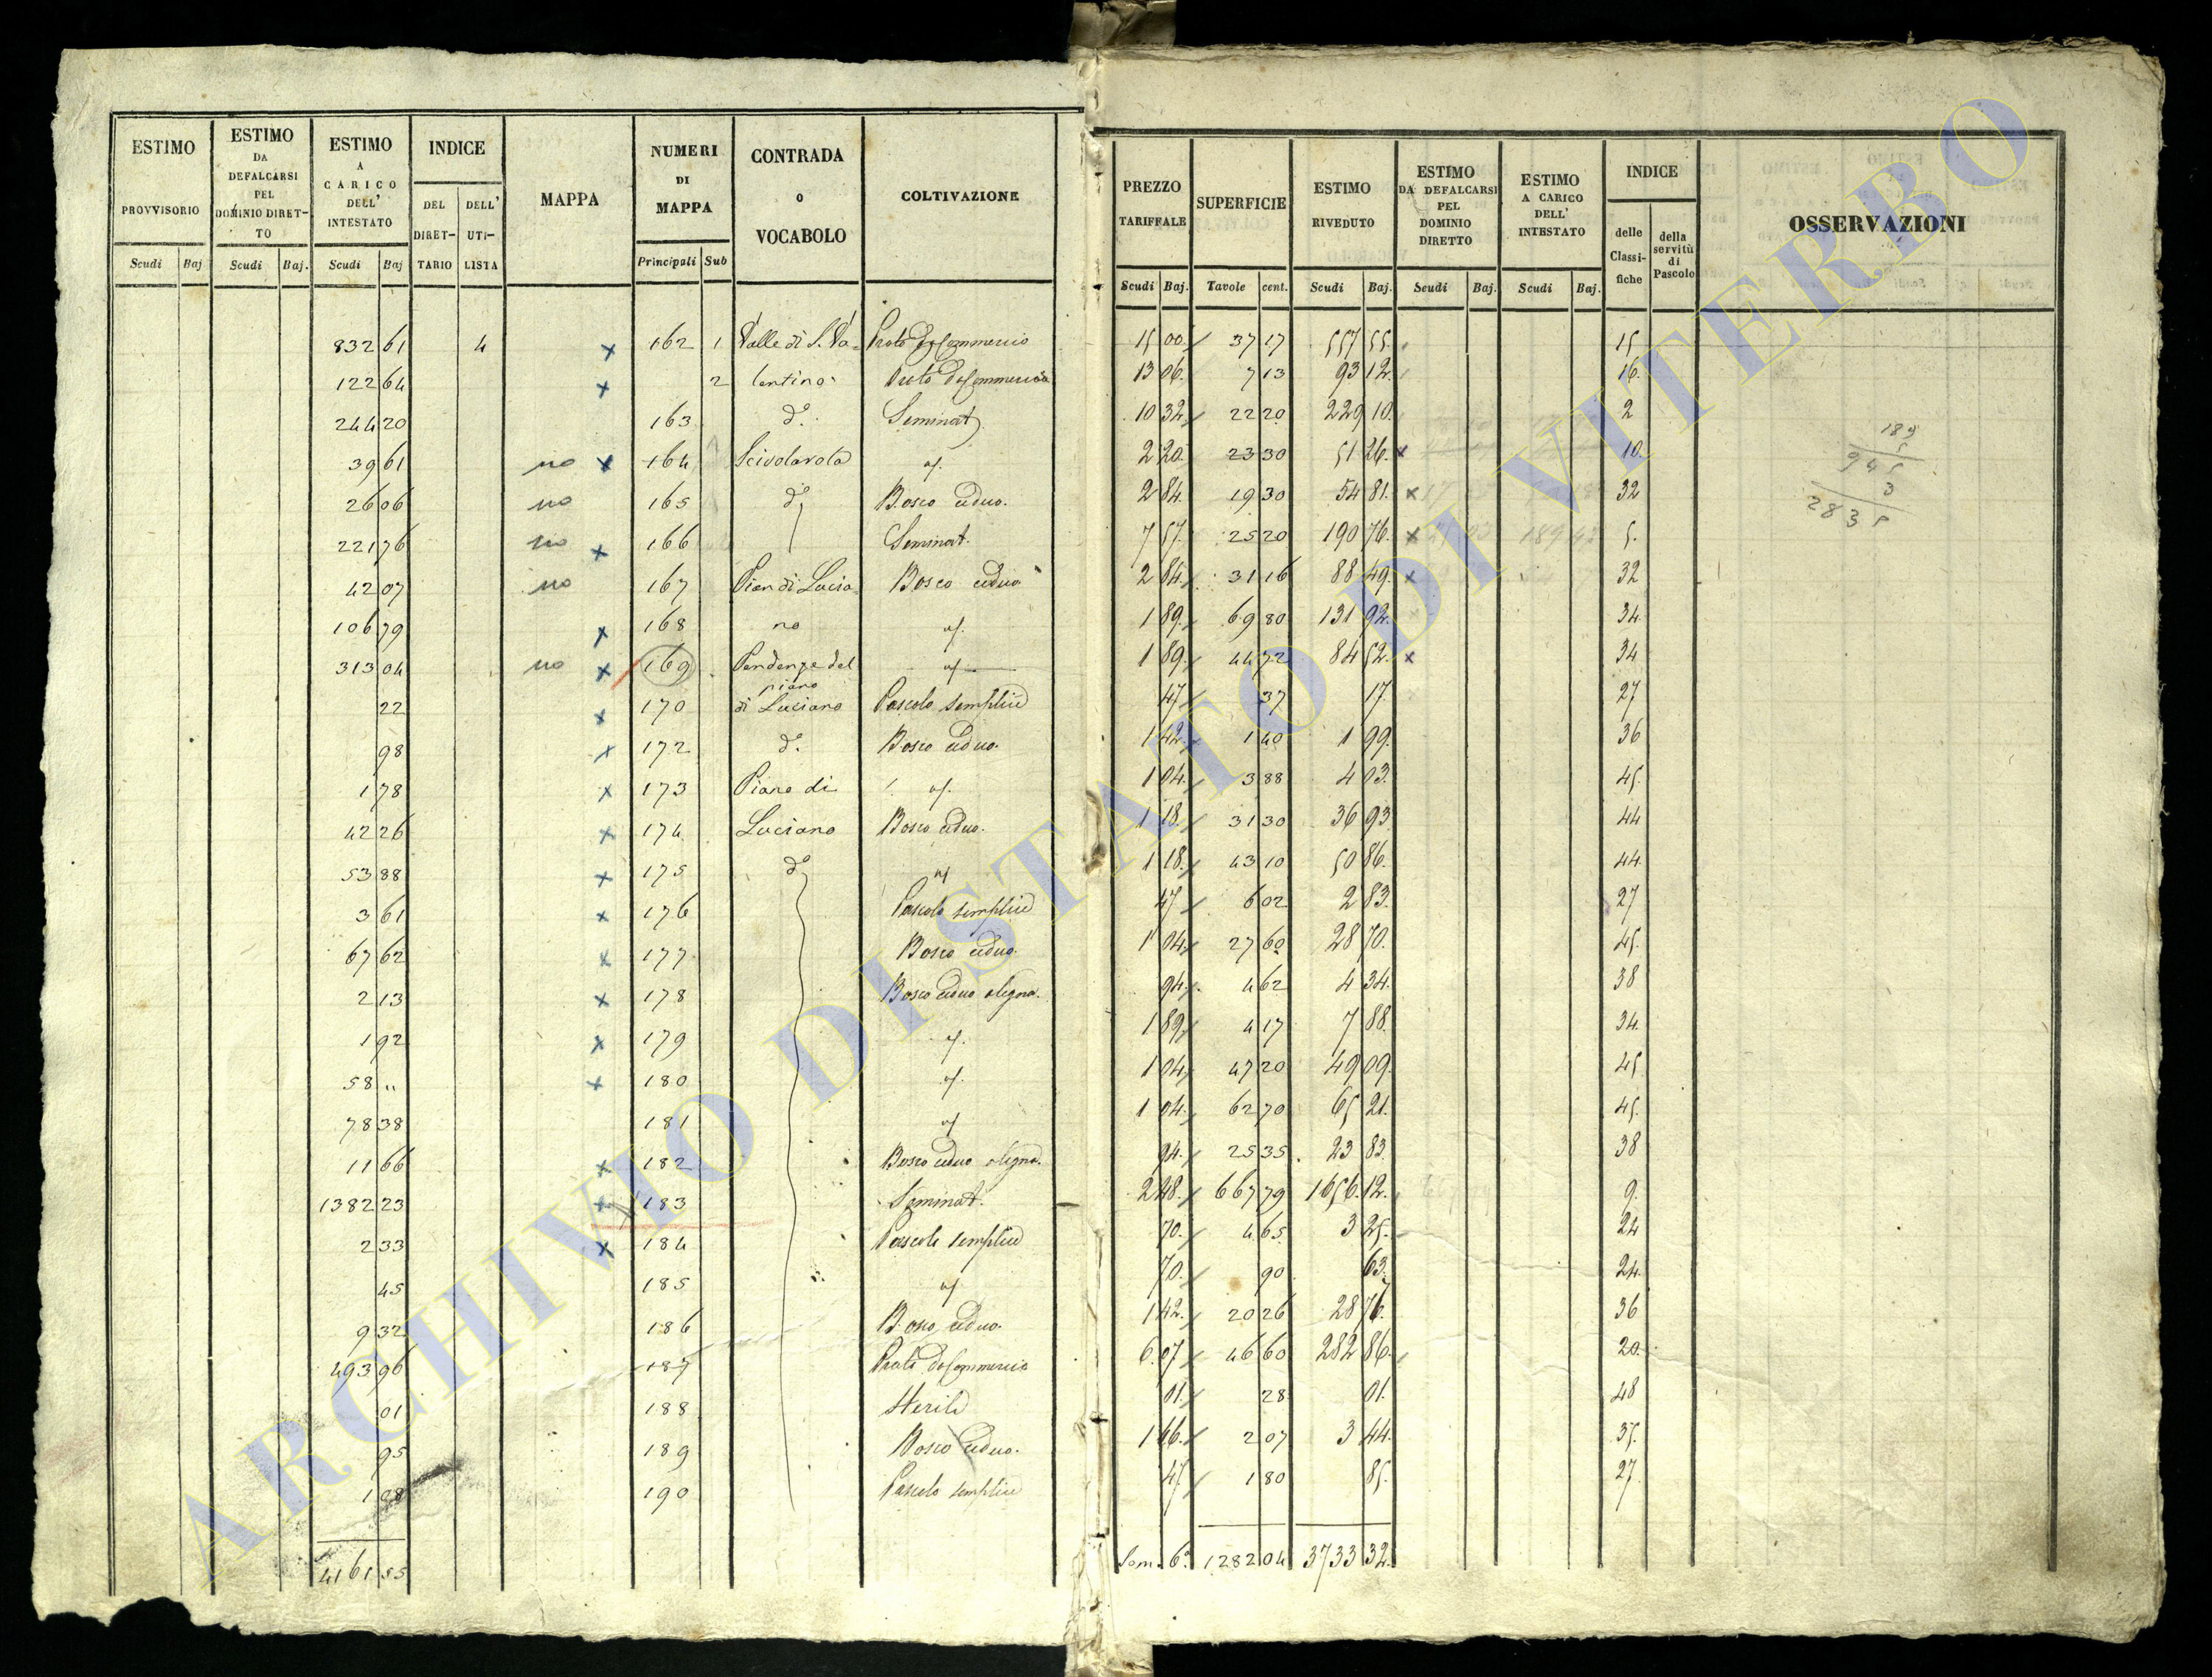 ESTIMO PROVVISORIO
ESTIMO DA DEFALCARSI PEL DOMINIO DIRET-TO
ESTIMO A CARICO DELL' INTESTATO
INDICE
DEL DIRET-TARIO
DELL' UTI-LISTA
MAPPA
NUMERI DI MAPPA
CONTRADA O VOCABOLO
COLTIVAZIONE
PREZZO TARIFFALE
SUPERFICIE
ESTIMO RIVEDUTO
ESTIMO DA DEFALCARSI PEL DOMINIO DIRETTO
ESTIMO A CARICO DELL' INTESTATO
INDICE
delle Classi-fiche
della servitù di Pascolo
OSSERVAZIONI
Scudi Baj Scudi Baj. Scudi Baj Principali Sub Scudi Baj. Tavole cent. Scudi Baj. Scudi Baj. Scudi Baj.
832 61 4 x 162 1 Valle di S. Va= Prato da Commercio 15 00 37 17 557 55 15
122 64 x 2 lentino Prato da Commercio 13 06 7 13 93 12 16
244 20 163 d° Seminat. 10 32 22 20 229 10 2
39 61 no x 164 Scivolarola 2 20 23 30 51 26 x 10
26 06 no 165 d° Bosco ceduo. 2 84 19 30 54 81 x 32
221 76 no x 166 Seminat. 7 57 25 20 190 76 x 189 42 5
42 07 no 167 Pian di Lucia Bosco ceduo 2 84 31 16 88 49 x 32
106 79 x 168 no 1 89 69 80 131 92 34
313 04 no x 169 Pendenze del 1 89 44 72 84 52 x 34
piano
22 x 170 di Luciano Pascolo semplice 47 37 17 27
98 x 172 d° Bosco ceduo. 1 42 1 40 1 99 36
1 78 x 173 Piano di 1 04 3 88 4 03 45
42 26 x 174 Luciano Bosco ceduo. 1 18 31 30 36 93 44
53 88 x 175 d° 1 18 43 10 50 86 44
3 61 x 176 Pascolo semplice 47 6 02 2 83 27
67 62 x 177 Bosco ceduo. 1 04 27 60 28 70 45
2 13 x 178 Bosco ceduo olegna. 94 4 62 4 34 38
1 92 x 179 1 89 4 17 7 88 34
58 " x 180 1 04 47 20 49 09 45
78 38 181 1 04 62 70 65 21 45
11 66 x 182 Bosco ceduo olegna. 94 25 35 23 83 38
1382 23 x 183 Seminat. 2 48 667 79 1656 12 9
2 33 x 184 Pascolo semplice 70 4 65 3 25 24
45 185 70 90 63 24
9 32 186 Bosco ceduo. 1 42 20 26 28 76 36
493 96 187 Prato da Commercio 6 07 46 60 282 86 20
01 188 Sterile 01 28 01 48
95 189 Bosco ceduo. 1 66 2 07 3 44 35
1 08 190 Pascolo semplice 47 1 80 85 27
4161 55 Som. 6° 1282 04 3733 32
189
5
945
3
2835
ARCHIVIO DI STATO DI VITERBO